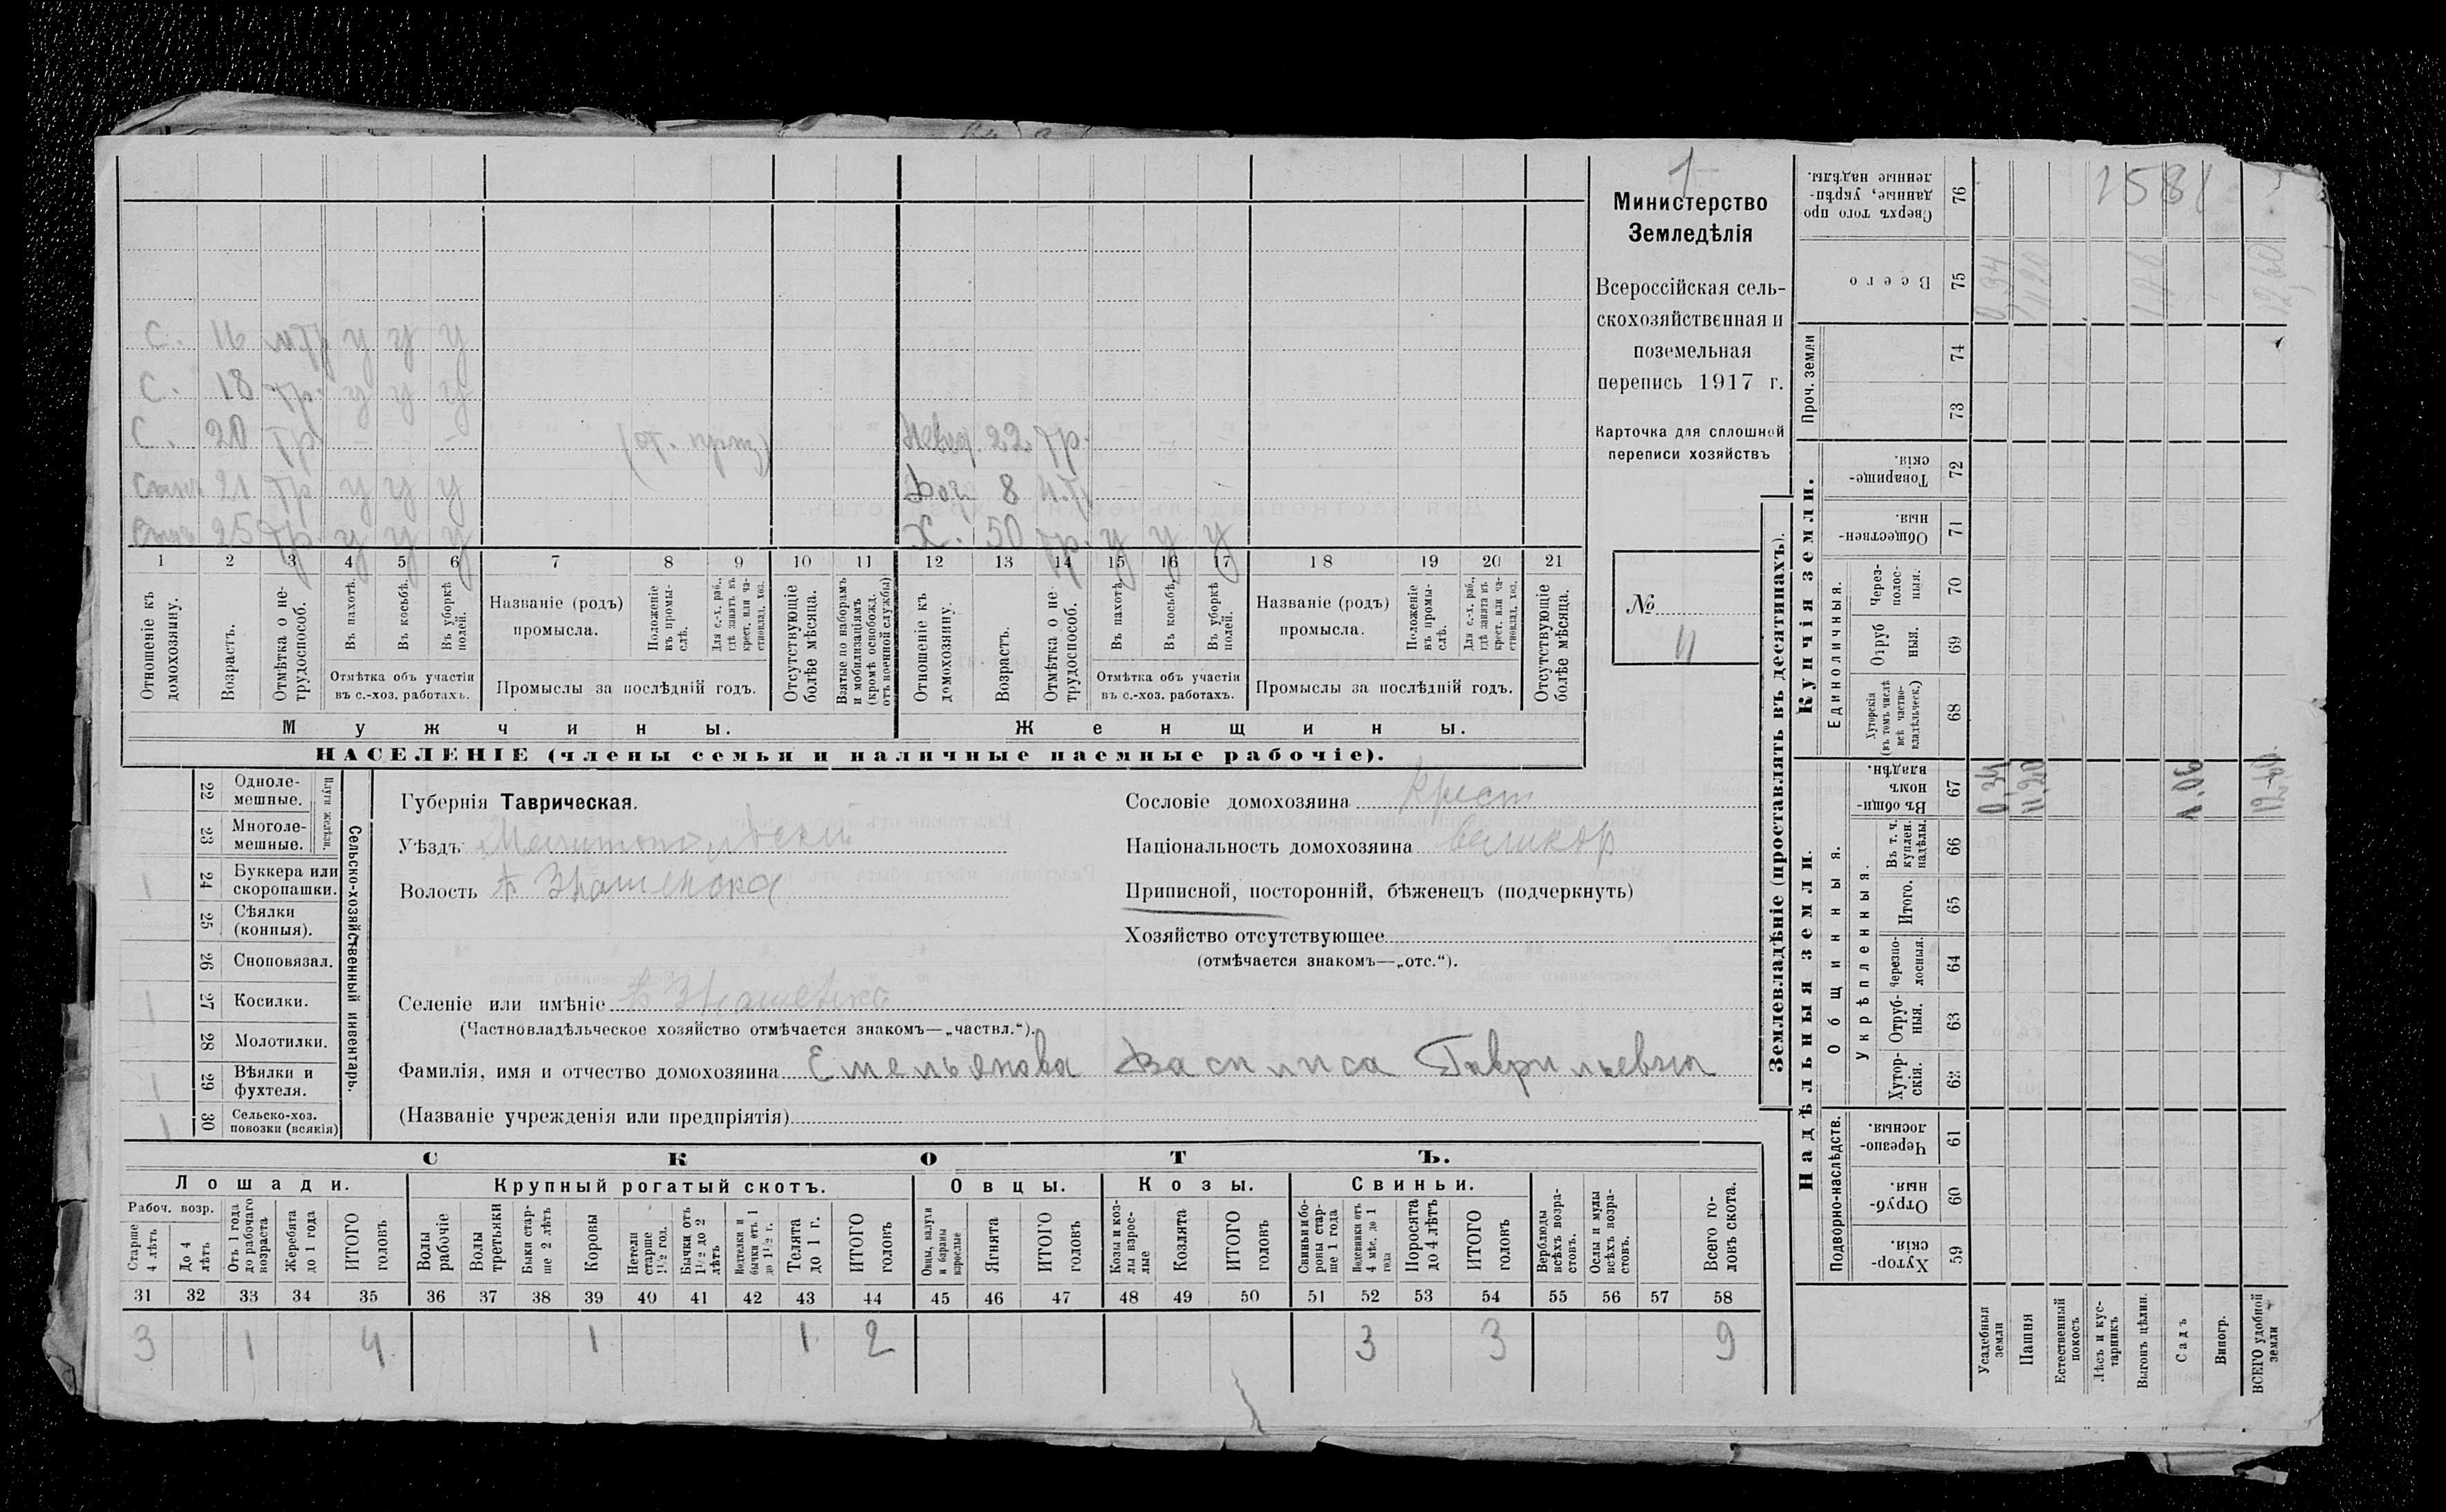 1
Министерство
Земледѣлія
Всероссійская сель-
скохозяйственная и
поземельная
перепись 1917 г.
Карточка для сплошной
переписи хозяйствъ
№
11
С. 16 у у у
С. 18 тр. у у у
С. 20 тр. - - - (от. ) 22 тр. - - -
21 тр у у у Доч. 8 - - -
25 тр. у у у Х. 50 тр. у у у
1 2 3 4 5 6 7 8 9 10 11 12 13 14 15 16 17 18 19 20 21
Отношеніе къ домохозяину.
Возрастъ.
Отмѣтка о не-трудоспособ.
Въ пахотѣ.
Въ косьбѣ.
Въ уборкѣ полей.
Отмѣтка объ участіи въ с.-хоз. работахъ.
Названіе (родъ) промысла.
Положеніе въ промы-слѣ.
Для с.-х. раб., гдѣ занятъ въ крест. или ча-стновлад. хоз.
Промыслы за послѣдній годъ.
Отсутствующіе болѣе мѣсяца.
Взятые по наборамъ и мобилизаціямъ (кромѣ освобожд. отъ военной службы)
Отношеніе къ домохозяину.
Возрастъ.
Отмѣтка о не-трудоспособ.
Въ пахотѣ.
Въ косьбѣ.
Въ уборкѣ полей.
Отмѣтка объ участіи въ с.-хоз. работахъ.
Названіе (родъ) промысла.
Положеніе въ промы-слѣ.
Для с.-х. раб., гдѣ занята въ крест. или ча-стновлад. хоз.
Промыслы за послѣдній годъ.
Отсутствующіе болѣе мѣсяца.
Мужчины. Женщины.
НАСЕЛЕНІЕ (члены семьи и наличные наемные рабочіе).
Сельско-хозяйственный инвентарь.
Плуги желѣзн.
22 Одноле-мешные.
23 Многоле-мешные.
1 24 Буккера или скоропашки.
25 Сѣялки (конныя).
26 Сноповязал.
1 27 Косилки.
28 Молотилки.
1 29 Вѣялки и фухтеля.
1 30 Сельско-хоз. повозки (всякія)
Губернія Таврическая.
Уѣздъ Мелитопольскій
Волость В Знаменска
Селеніе или имѣніе В Знаменка
(Частновладѣльческое хозяйство отмѣчается знакомъ—„частвл.“).
Фамилія, имя и отчество домохозяина Емельянова Василиса Гаврильевна
(Названіе учрежденія или предпріятія)
Сословіе домохозяина крест
Національность домохозяина великор
Приписной, посторонній, бѣженецъ (подчеркнуть)
Хозяйство отсутствующее
(отмѣчается знакомъ—„отс.“).
СКОТЪ.
Лошади. Крупный рогатый скотъ. Овцы. Козы. Свиньи.
Рабоч. возр.
Старше 4 лѣтъ
До 4 лѣтъ
Отъ 1 года до рабочаго возраста
Жеребята до 1 года
ИТОГО головъ
Волы рабочіе
Волы третьяки
Быки стар-ше 2 лѣтъ
Коровы
Нетели старше 1½ год.
Бычки отъ 1½ до 2 лѣтъ
Подтелки и бычки отъ 1 до 1½ г.
Телята до 1 г.
ИТОГО головъ
Овцы, валухи и бараны взрослые
Ягнята
ИТОГО головъ
Козы и коз-лы взрос-лые
Козлята
ИТОГО головъ
Свиньи и бо-ровы стар-ше 1 года
Подсвинки отъ 4 мѣс. до 1 года
Поросята до 4 лѣтъ
ИТОГО головъ
Верблюды всѣхъ возра-стовъ.
Ослы и мулы всѣхъ возра-стовъ.
Всего го-ловъ скота.
31 32 33 34 35 36 37 38 39 40 41 42 43 44 45 46 47 48 49 50 51 52 53 54 55 56 57 58
3 1 4 1 1 2 3 3 9
Землевладѣніе (проставлять въ десятинахъ).
Надѣльныя земли. Купчія земли. Проч. земли
Подворно-наслѣдств. Общинныя. Укрѣпленныя. Единоличныя.
59 Хутор-скія.
60 Отруб-ныя.
61 Черезпо-лосныя.
62 Хутор-скія.
63 Отруб-ныя.
64 Черезпо-лосныя.
65 Итого.
66 Въ т. ч. куплен. надѣлы.
67 Въ общи-номъ владѣн.
68 Хуторскія (въ томъ числѣ всѣ частно-владѣльческ.)
69 Отруб ныя.
70 Через-полос-ныя.
71 Обществен-ныя.
72 Товарище-скія.
73
74
75 Всего
76 Сверхъ того про данные, укрѣп-ленные надѣлы.
Усадебныя земли 0,34 0,34
Пашня 11,20 11,20
Естественный покосъ
Лѣсъ и кус-тарникъ
Выгонъ цѣлин.
Садъ 1,06
Виногр.
ВСЕГО удобной земли 12,60 12,60
1581